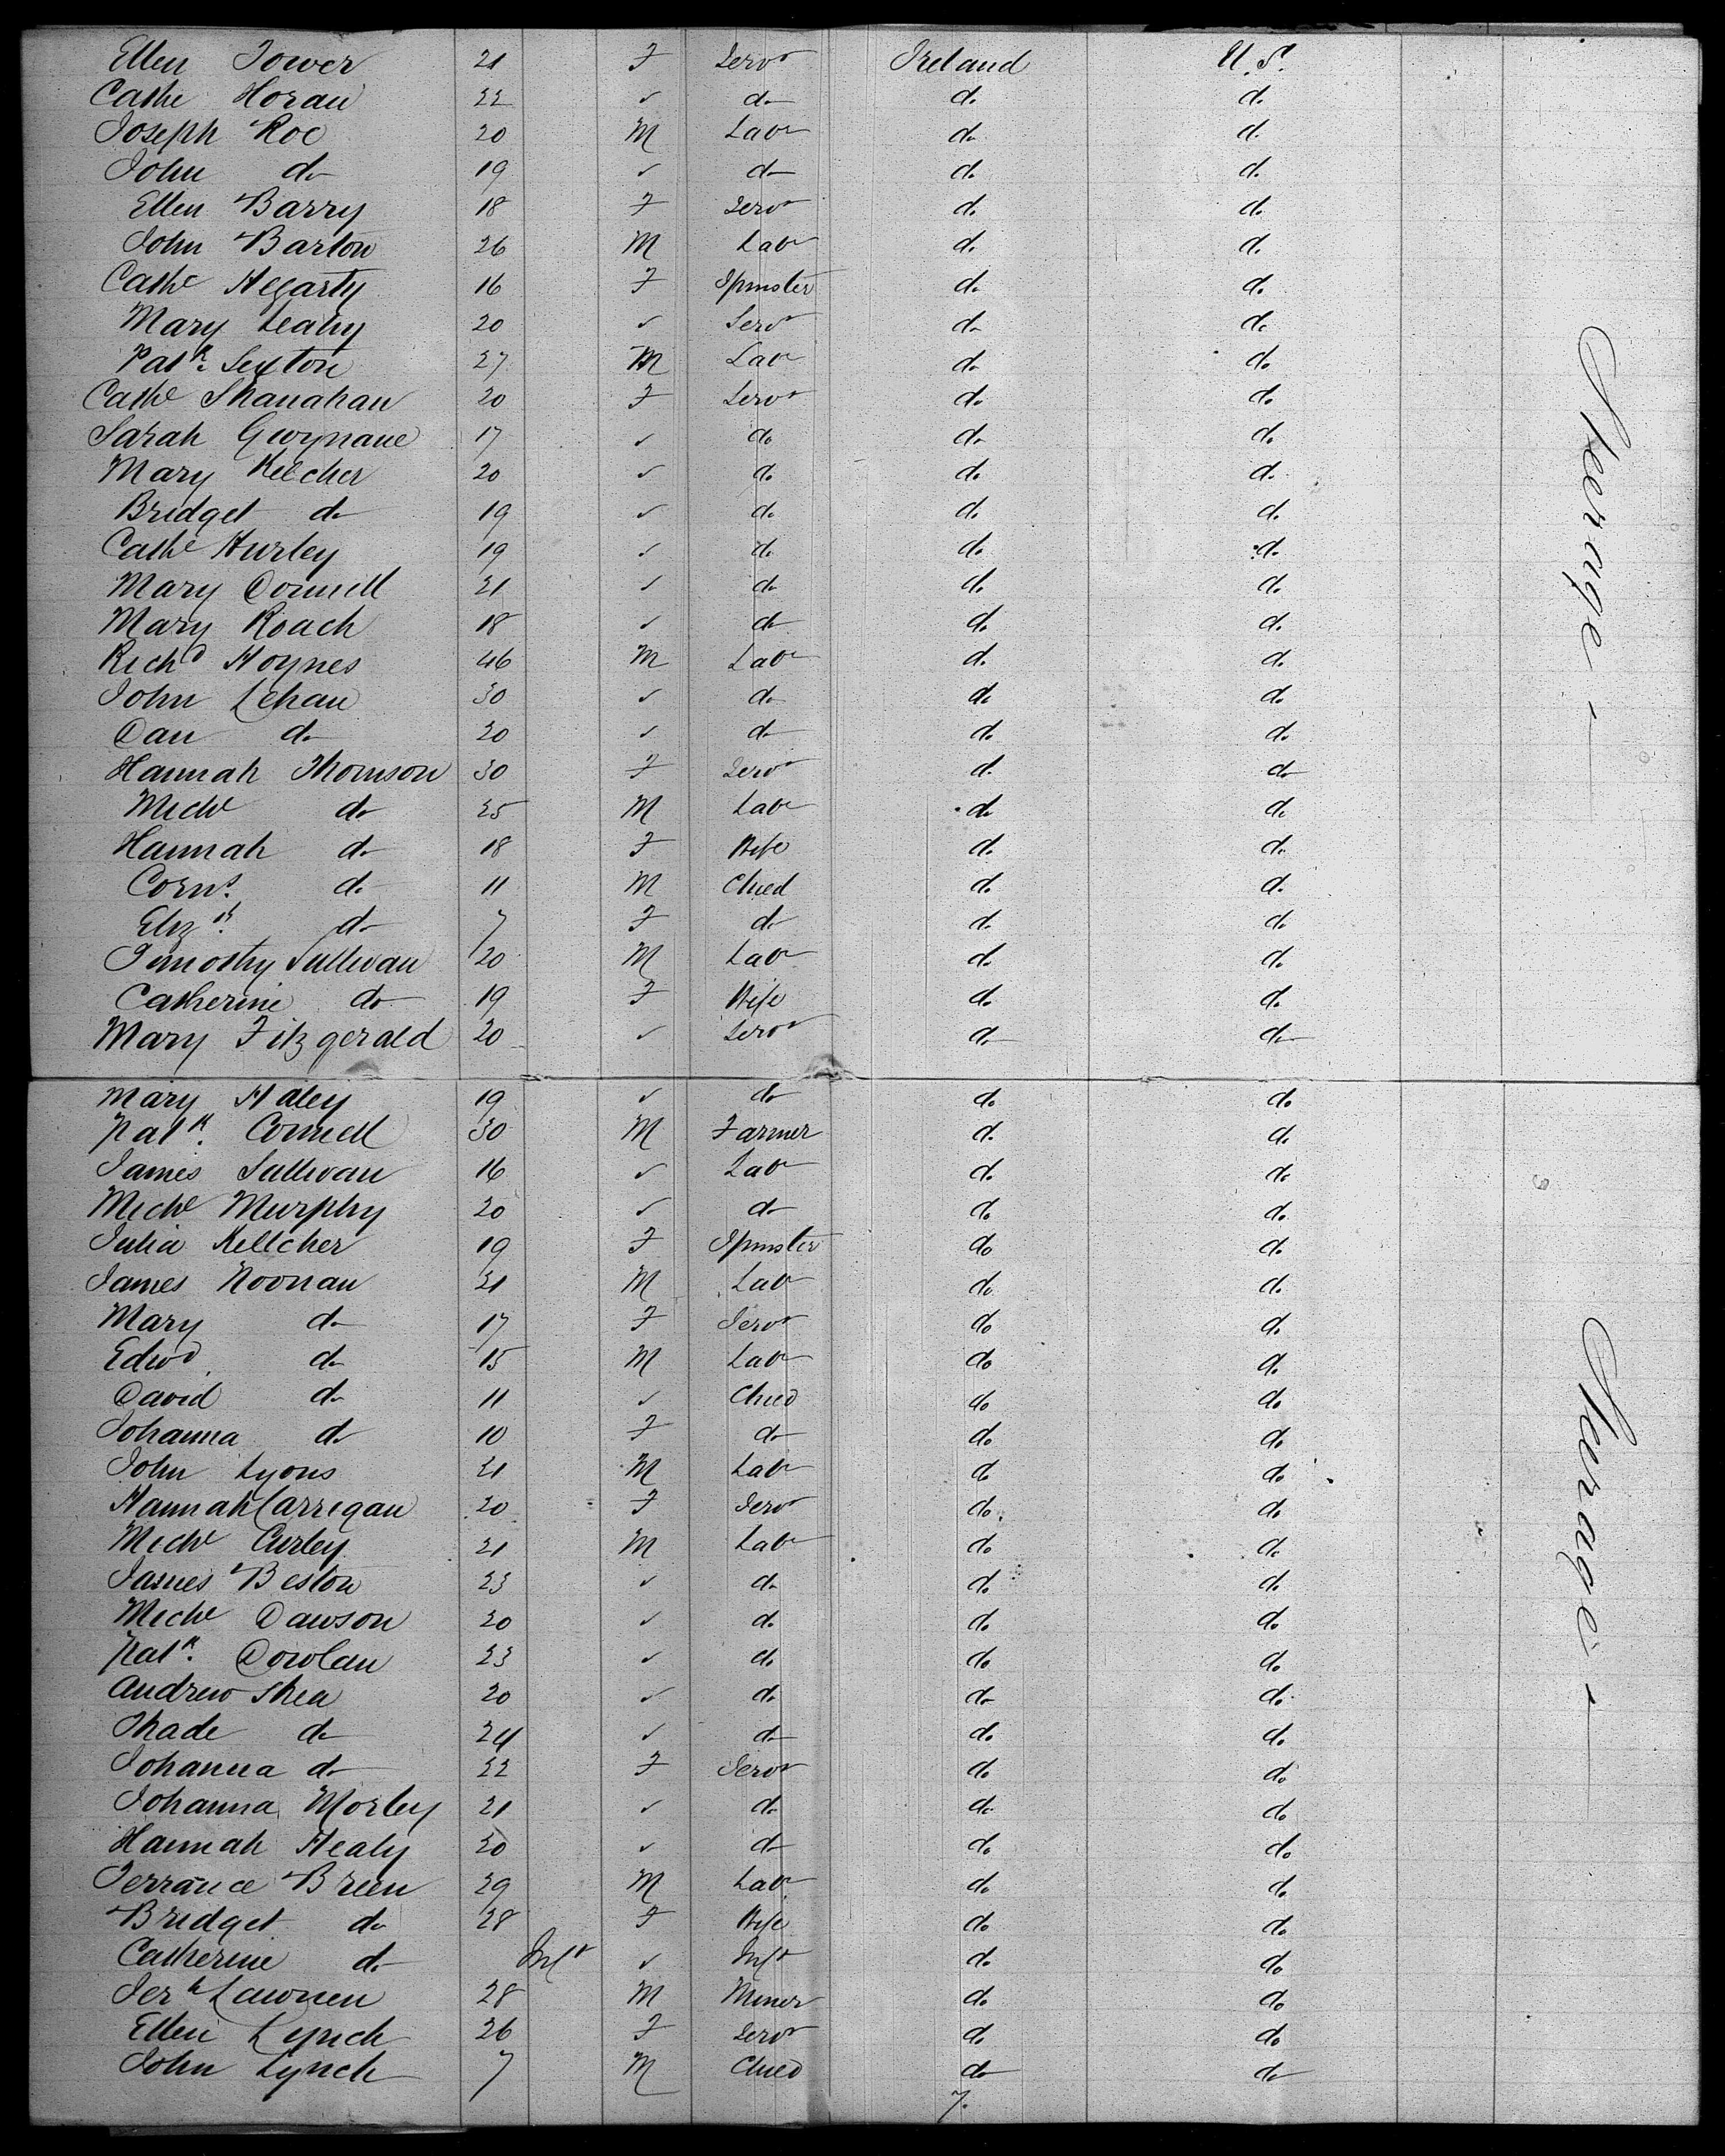 Ellen Tower 21 F Servt Ireland U.S.
Cathe Horan 22 ✓ do do do
Joseph Roe 20 M Labr do do
John do 19 ✓ do do do
Ellen Barry 18 F Servt do do
John Barton 26 M Labr do do
Cathe Hegarty 16 F Spinster do do
Mary Leahy 20 ✓ Servt do do
Patk. Sexton 27 M Labr do do
Cathe Shanahan 20 F Servt do do
Sarah Gwynane 17 ✓ do do do
Mary Kelcher 20 ✓ do do do
Bridget do 19 ✓ do do do
Cathe Hurley 19 ✓ do do do
Mary Donnell 21 ✓ do do do
Mary Roach 18 ✓ do do do
Richd Hoynes 46 M Labr do do
John Lehan 30 ✓ do do do
Dan do 20 ✓ do do do
Hannah Thomson 30 F Servt do do
Michl do 25 M Labr do do
Hannah do 18 F Wife do do
Corns. do 11 M Child do do
Elizh. do 7 F do do do
Timothy Sullivan 20 M Labr do do
Catherine do 19 F Wife do do
Mary Fitzgerald 20 ✓ Servt do do
Steerage
Mary Haley 19 ✓ do do do
Patk. Connell 30 M Farmer do do
James Sullivan 16 ✓ Labr do do
Michl Murphy 20 ✓ do do do
Julia Kellcher 19 F Spinster do do
James Noonan 21 M Labr do do
Mary do 17 F Servt do do
Edwd do 15 M Labr do do
David do 11 ✓ Child do do
Johanna do 10 F do do do
John Lyons 21 M Labr do do
Hannah Carrigan 20 F Servt do do
Michl Curley 21 M Labr do do
James Beston 23 ✓ do do do
Michl Dawson 20 ✓ do do do
Patk. Dowlan 23 ✓ do do do
Andrew Shea 20 ✓ do do do
Thade do 24 ✓ do do do
Johanna do 22 F Servt do do
Johanna Morley 21 ✓ do do do
Hannah Healy 20 ✓ do do do
Terrance Breen 29 M Labr do do
Bridget do 28 F Wife do do
Catherine do Inft ✓ Inft do do
Jerh 28 M Miner do do
Ellen Lynch 26 F Servt do do
John Lynch 7 M Child do do
Steerage
7.